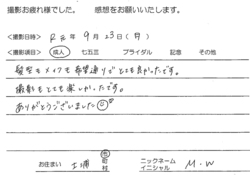 撮影お疲れ様でした。 感想をお願いいたします。
<撮影日時> R元年 9月23日(月)
<撮影項目> 成人 七五三 ブライダル 記念 その他
髪型もメイクも希望通りでとても良かったです。
撮影もとても楽しかったです。
ありがとうございました
お住まい 土浦 市 町 村 ニックネーム イニシャル M.W